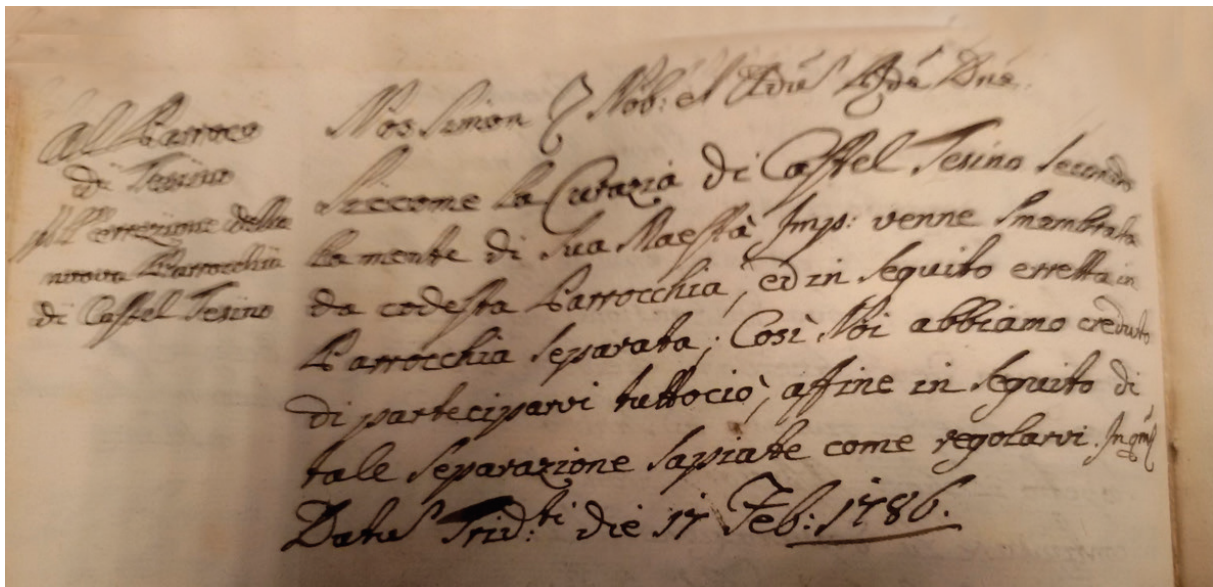 Al Parroco
di Tesino
sull'errezione della
nuova Parrocchia
di Castel Tesino
Nos Simon Nob: et
Siccome la Curazia di Castel Tesino secondo
la mente di Sua Maestà Imp: venne smembrata
da codesta Parrocchia, ed in seguito erretta in
Parrocchia separata; Così Noi abbiamo creduto
di parteciparvi tuttociò, affine in seguito di
tale separazione sapiate come regolarvi.
Datu Trid:ti die 17 Feb: 1786.